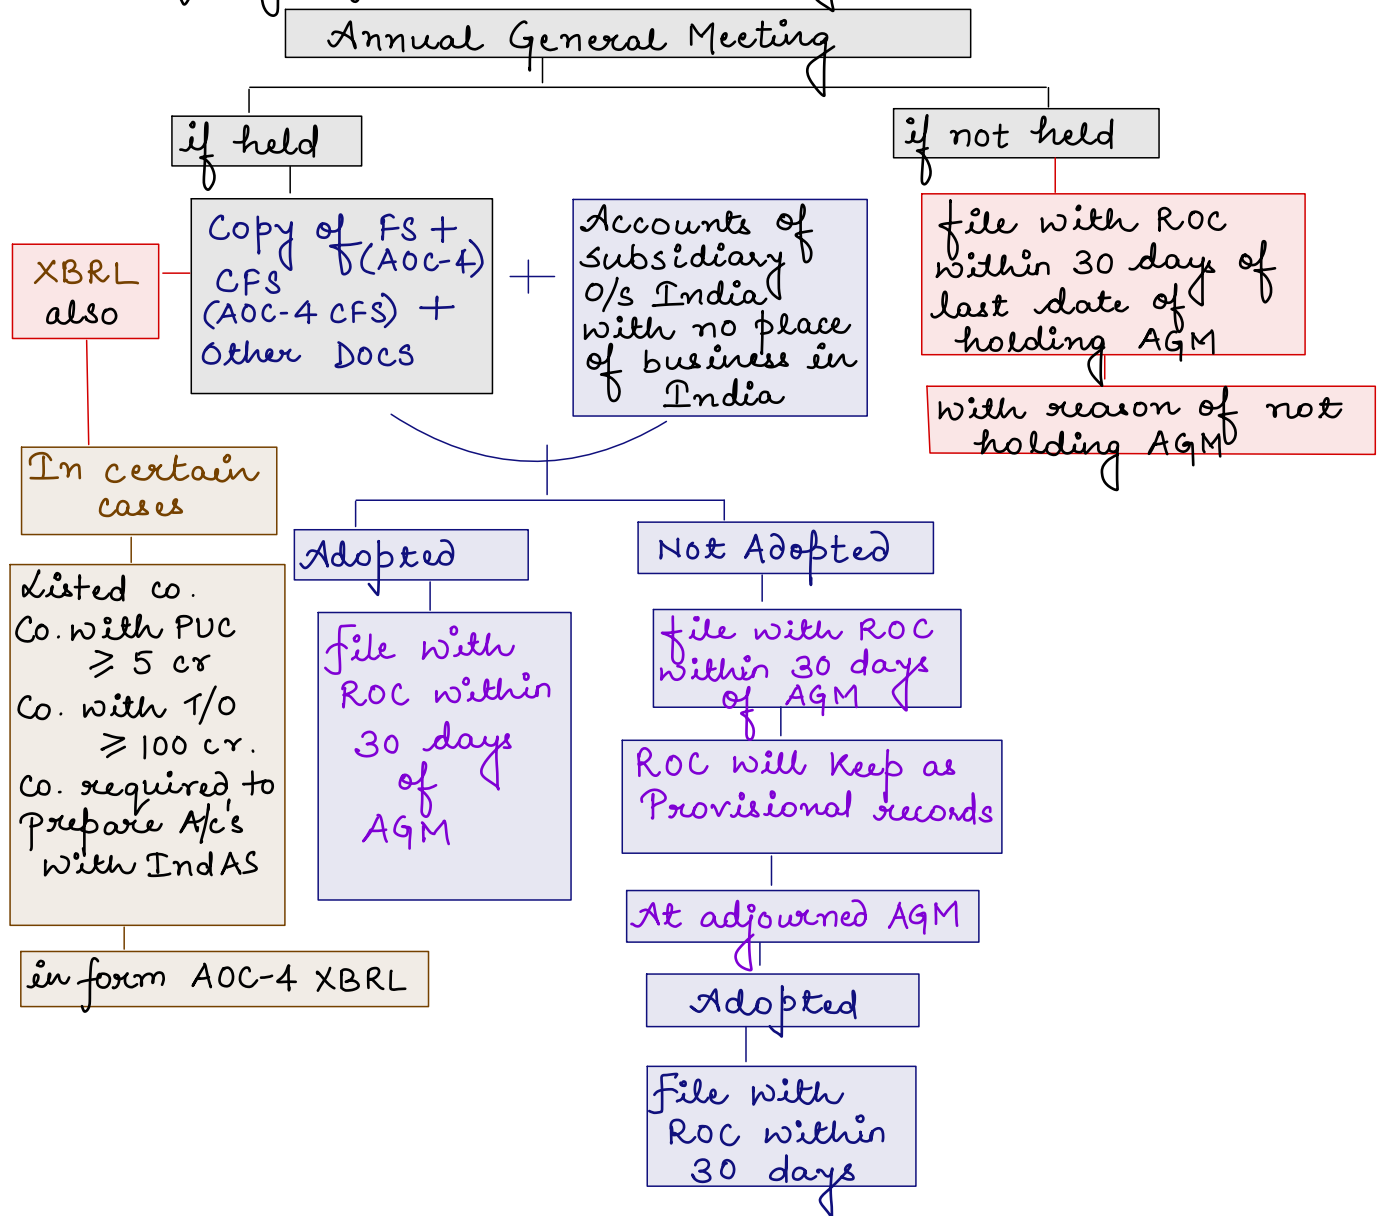 Annual General Meeting
if held
if not held
Copy of FS +
(AOC-4)
CFS
(AOC-4 CFS) +
Other DOCS
+
Accounts of
subsidiary
O/S India
with no place
of business in
India
file with ROC
within 30 days of
last date of
holding AGM
with reason of not
holding AGM
XBRL
also
In certain
cases
Listed co.
Co. with PUC
≥ 5 cr
Co. with T/O
≥ 100 cr.
Co. required to
prepare A/c's
with IndAS
in form AOC-4 XBRL
Adopted
File with
ROC within
30 days
of
AGM
Not Adopted
file with ROC
within 30 days
of AGM
ROC will keep as
Provisional records
At adjourned AGM
Adopted
File with
ROC within
30 days